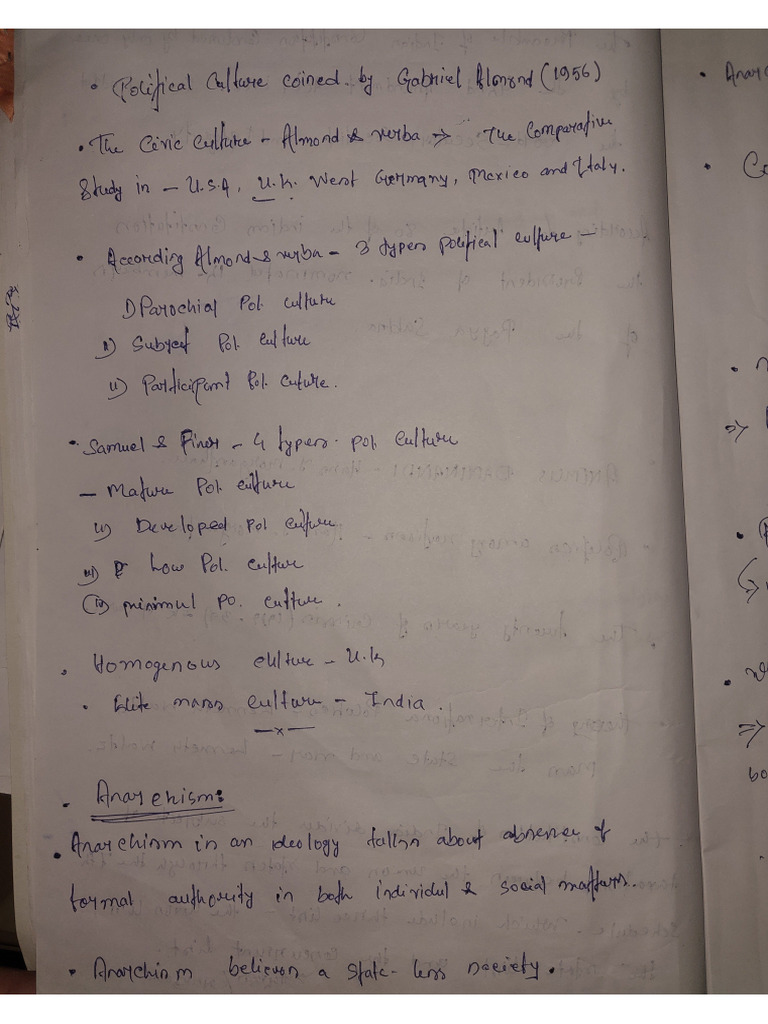 • Political Culture coined by Gabriel Almond (1956)
• The Civic Culture - Almond & verba → The Comparative
Study in - U.S.A, U.K. West Germany, Mexico and Italy.
• According Almond & verba - 3 types political culture -
i) Parochial Pol. culture
ii) Subject Pol. culture
ii) Participant Pol. cuture.
• Samuel & Finer - 4 types pol. culture
- Mature Pol. culture
ii) Developed pol culture
iii) Low Pol. culture
(iv) minimul po. culture.
• Homogenous culture - U.K
• Elite mass culture - India.
—x—
• Anarchism:
• Anarchism is an ideology talks about absence of
formal authority in both individul & social matters.
• Anarchism believes a state-less society.